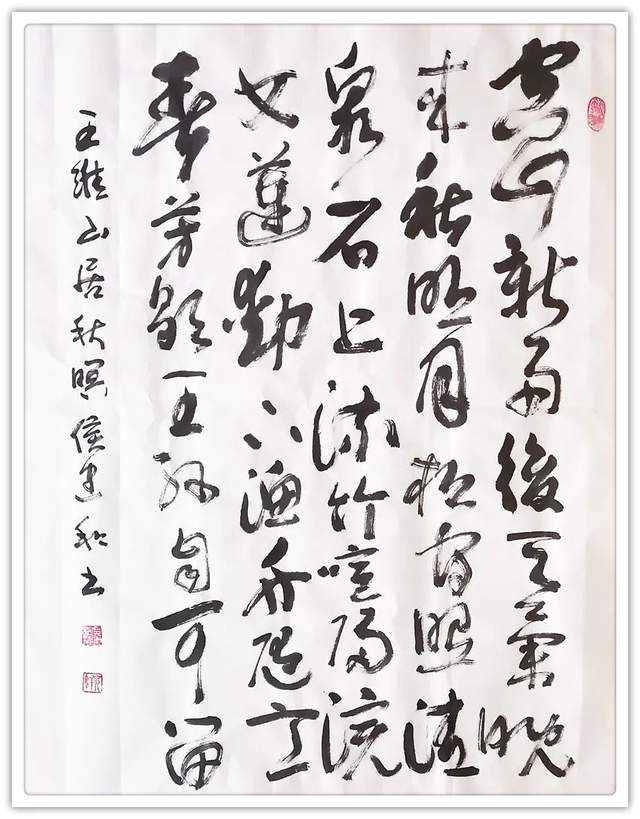 空山新雨後天氣晚
来秋明月松間照清
泉石上流竹喧歸浣
女蓮動下漁舟随意
春芳歇王孫自可留
王維山居秋暝侯建和书